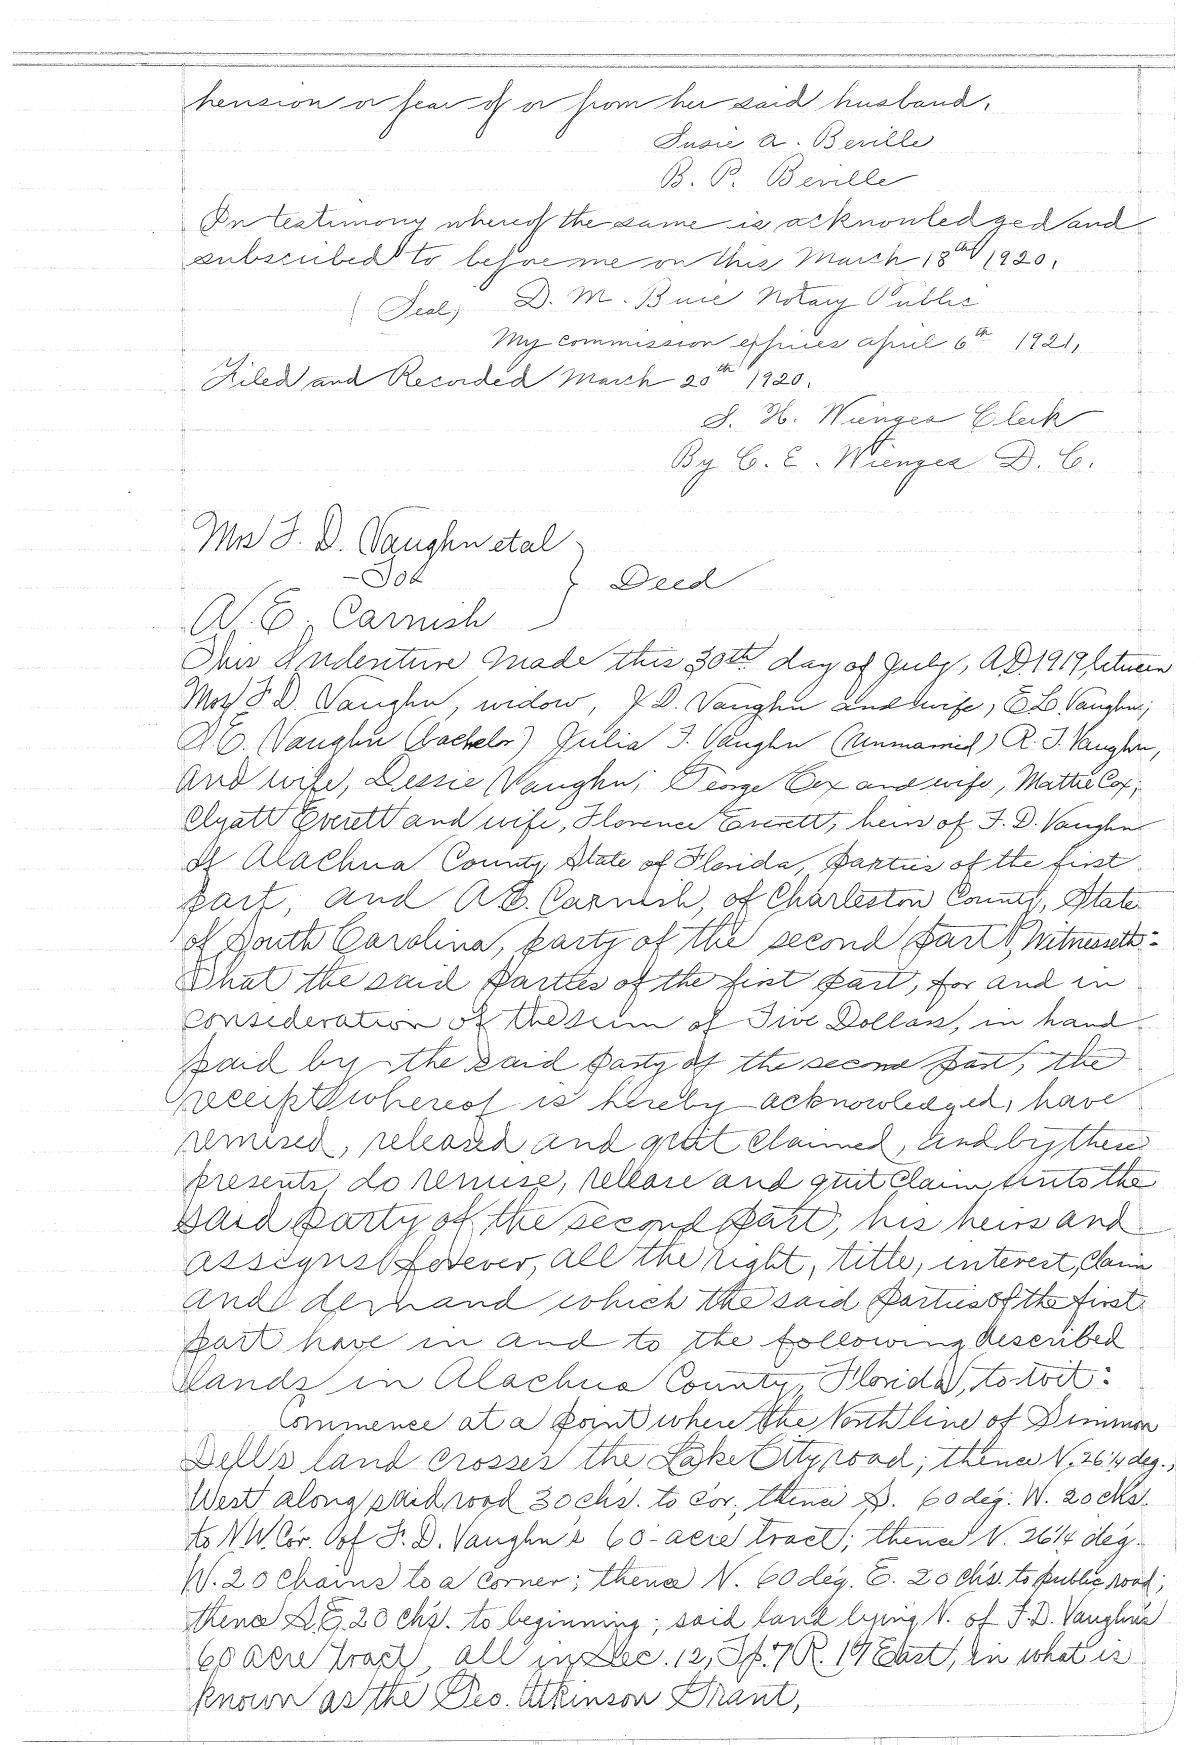 hension or fear of or from her said husband.
Susie A. Beville
B. P. Beville
In testimony whereof the same is acknowledged and
subscribed to before me on this March 18th 1920.
(Seal) D. M. Buie Notary Public
My commission expires april 6th 1921,
Filed and Recorded March 20th 1920.
S. H. Wienges Clerk
By C. E. Wienges D. C.
Mrs F. D. Vaughn et al
-To-
Deed
A. E. Carnish
This Indenture Made this 30th day of July, A.D. 1919, between
Mrs F. D. Vaughn, widow, J. D. Vaughn and wife, E L. Vaughn;
E. Vaughn (bachelor) Julia F. Vaughn (Unmarried) R. F. Vaughn,
and wife, Dessie Vaughn; George Cox and wife, Mattie Cox;
Clyatt Everett and wife, Florence Everett, heirs of F. D. Vaughn
of Alachua County, State of Florida, parties of the first
part, and A E. Carnish, of Charleston County, State
of South Carolina, party of the second part, Witnesseth:-
That the said parties of the first part, for and in
consideration of the sum of Five Dollars, in hand
paid by the said party of the second part, the
receipt whereof is hereby acknowledged, have
remised, released and quit claimed, and by these
presents do remise, release and quit claim unto the
said party of the second part, his heirs and
assigns forever, all the right, title, interest, claim
and demand which the said parties of the first
part have in and to the following described
lands in Alachua County, Florida, to-wit:
Commence at a point where the North line of Simmon
Dell's land crosses the Lake City road; thence N. 26¼ deg.,
West along said road 30 chs. to cor, thence S. 60 deg. W. 20 chs.
to N.W. Cor. of F. D. Vaughn's 60-acre tract; thence N. 26¼ deg.
W. 20 chains to a corner; thence N. 60 deg. E. 20 ch's. to public road;
thence S. E. 20 ch's. to beginning; said land lying N. of F. D. Vaughn's
60 acre tract, all in Sec. 12, Tp. 7 R. 17 East, in what is
known as the Geo. Atkinson Grant,